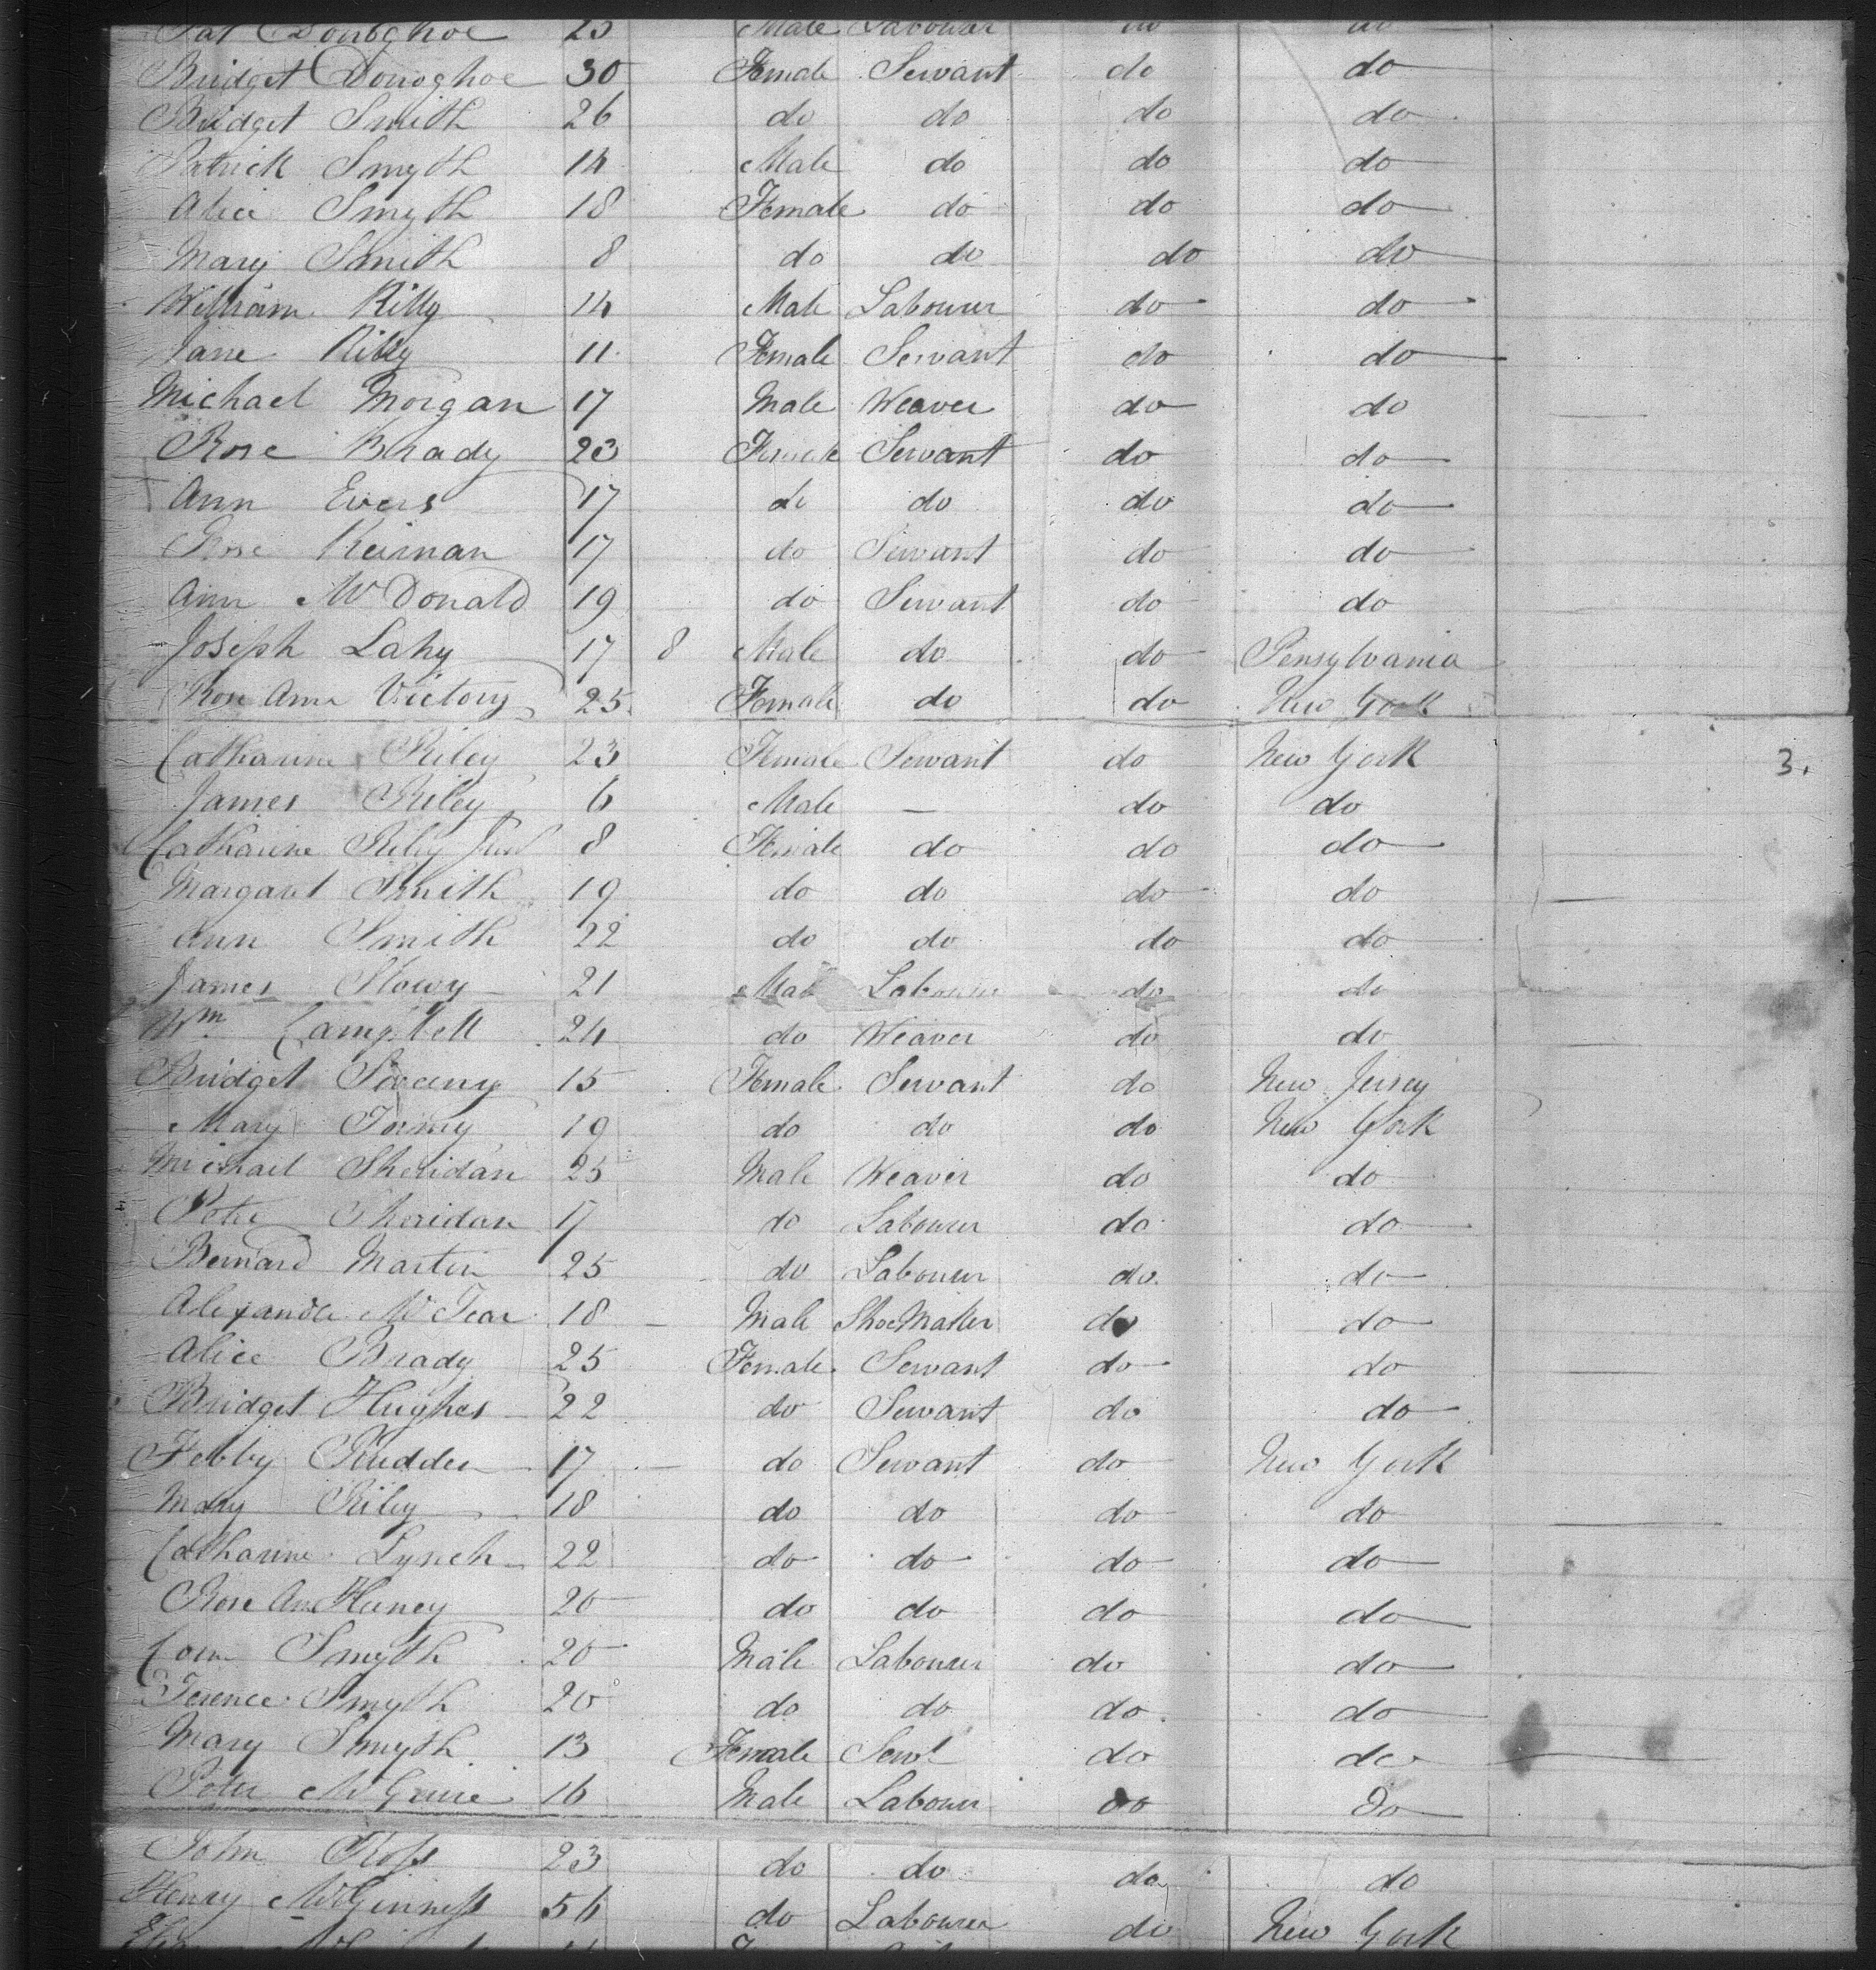 Pat Donoghoe 25 Male Labourer do do
Bridget Donoghoe 30 Female Servant do do
Bridget Smith 26 do do do do
Patrick Smyth 14 Male do do do
Alice Smyth 18 Female do do do
Mary Smith 8 do do do do
William Rilly 14 Male Labourer do do
Jane Rilly 11 Female Servant do do
Michael Morgan 17 Male Weaver do do
Rose Brady 23 Female Servant do do
Ann Evers 17 do do do do
Rose Keirnan 17 do Servant do do
Ann McDonald 19 do Servant do do
Joseph Lahy 17 8 Male do do Pensylvania
Rose Ann Victory 25 Female do do New York
Catharine Riley 23 Female Servant do New York 3.
James Riley 6 Male — do do
Catharine Riley Junr 8 Female do do do
Margaret Smith 19 do do do do
Ann Smith 22 do do do do
James 21 Male Labourer do do
Wm Campbell 24 do Weaver do do
Bridget 15 Female Servant do New Jersey
Mary 19 do do do New York
Michael Sheridan 25 Male Weaver do do
Peter Sheridan 17 do Labourer do do
Bernard Martin 25 do Labourer do do
Alexander McTear 18 Male ShoeMaker do do
Alice Brady 25 Female Servant do do
Bridget Hughes 22 do Servant do do
Febby 17 do Servant do New York
Mary Riley 18 do do do do
Catharine Lynch 22 do do do do
Rose Ann 20 do do do do
Smyth 20 Male Labourer do do
Terence Smyth 20 do do do do
Mary Smyth 13 Female Servt do do
Peter 16 Male Labourer do do
John Ross 23 do do do do
Henry McGinness 56 do Labourer do New York